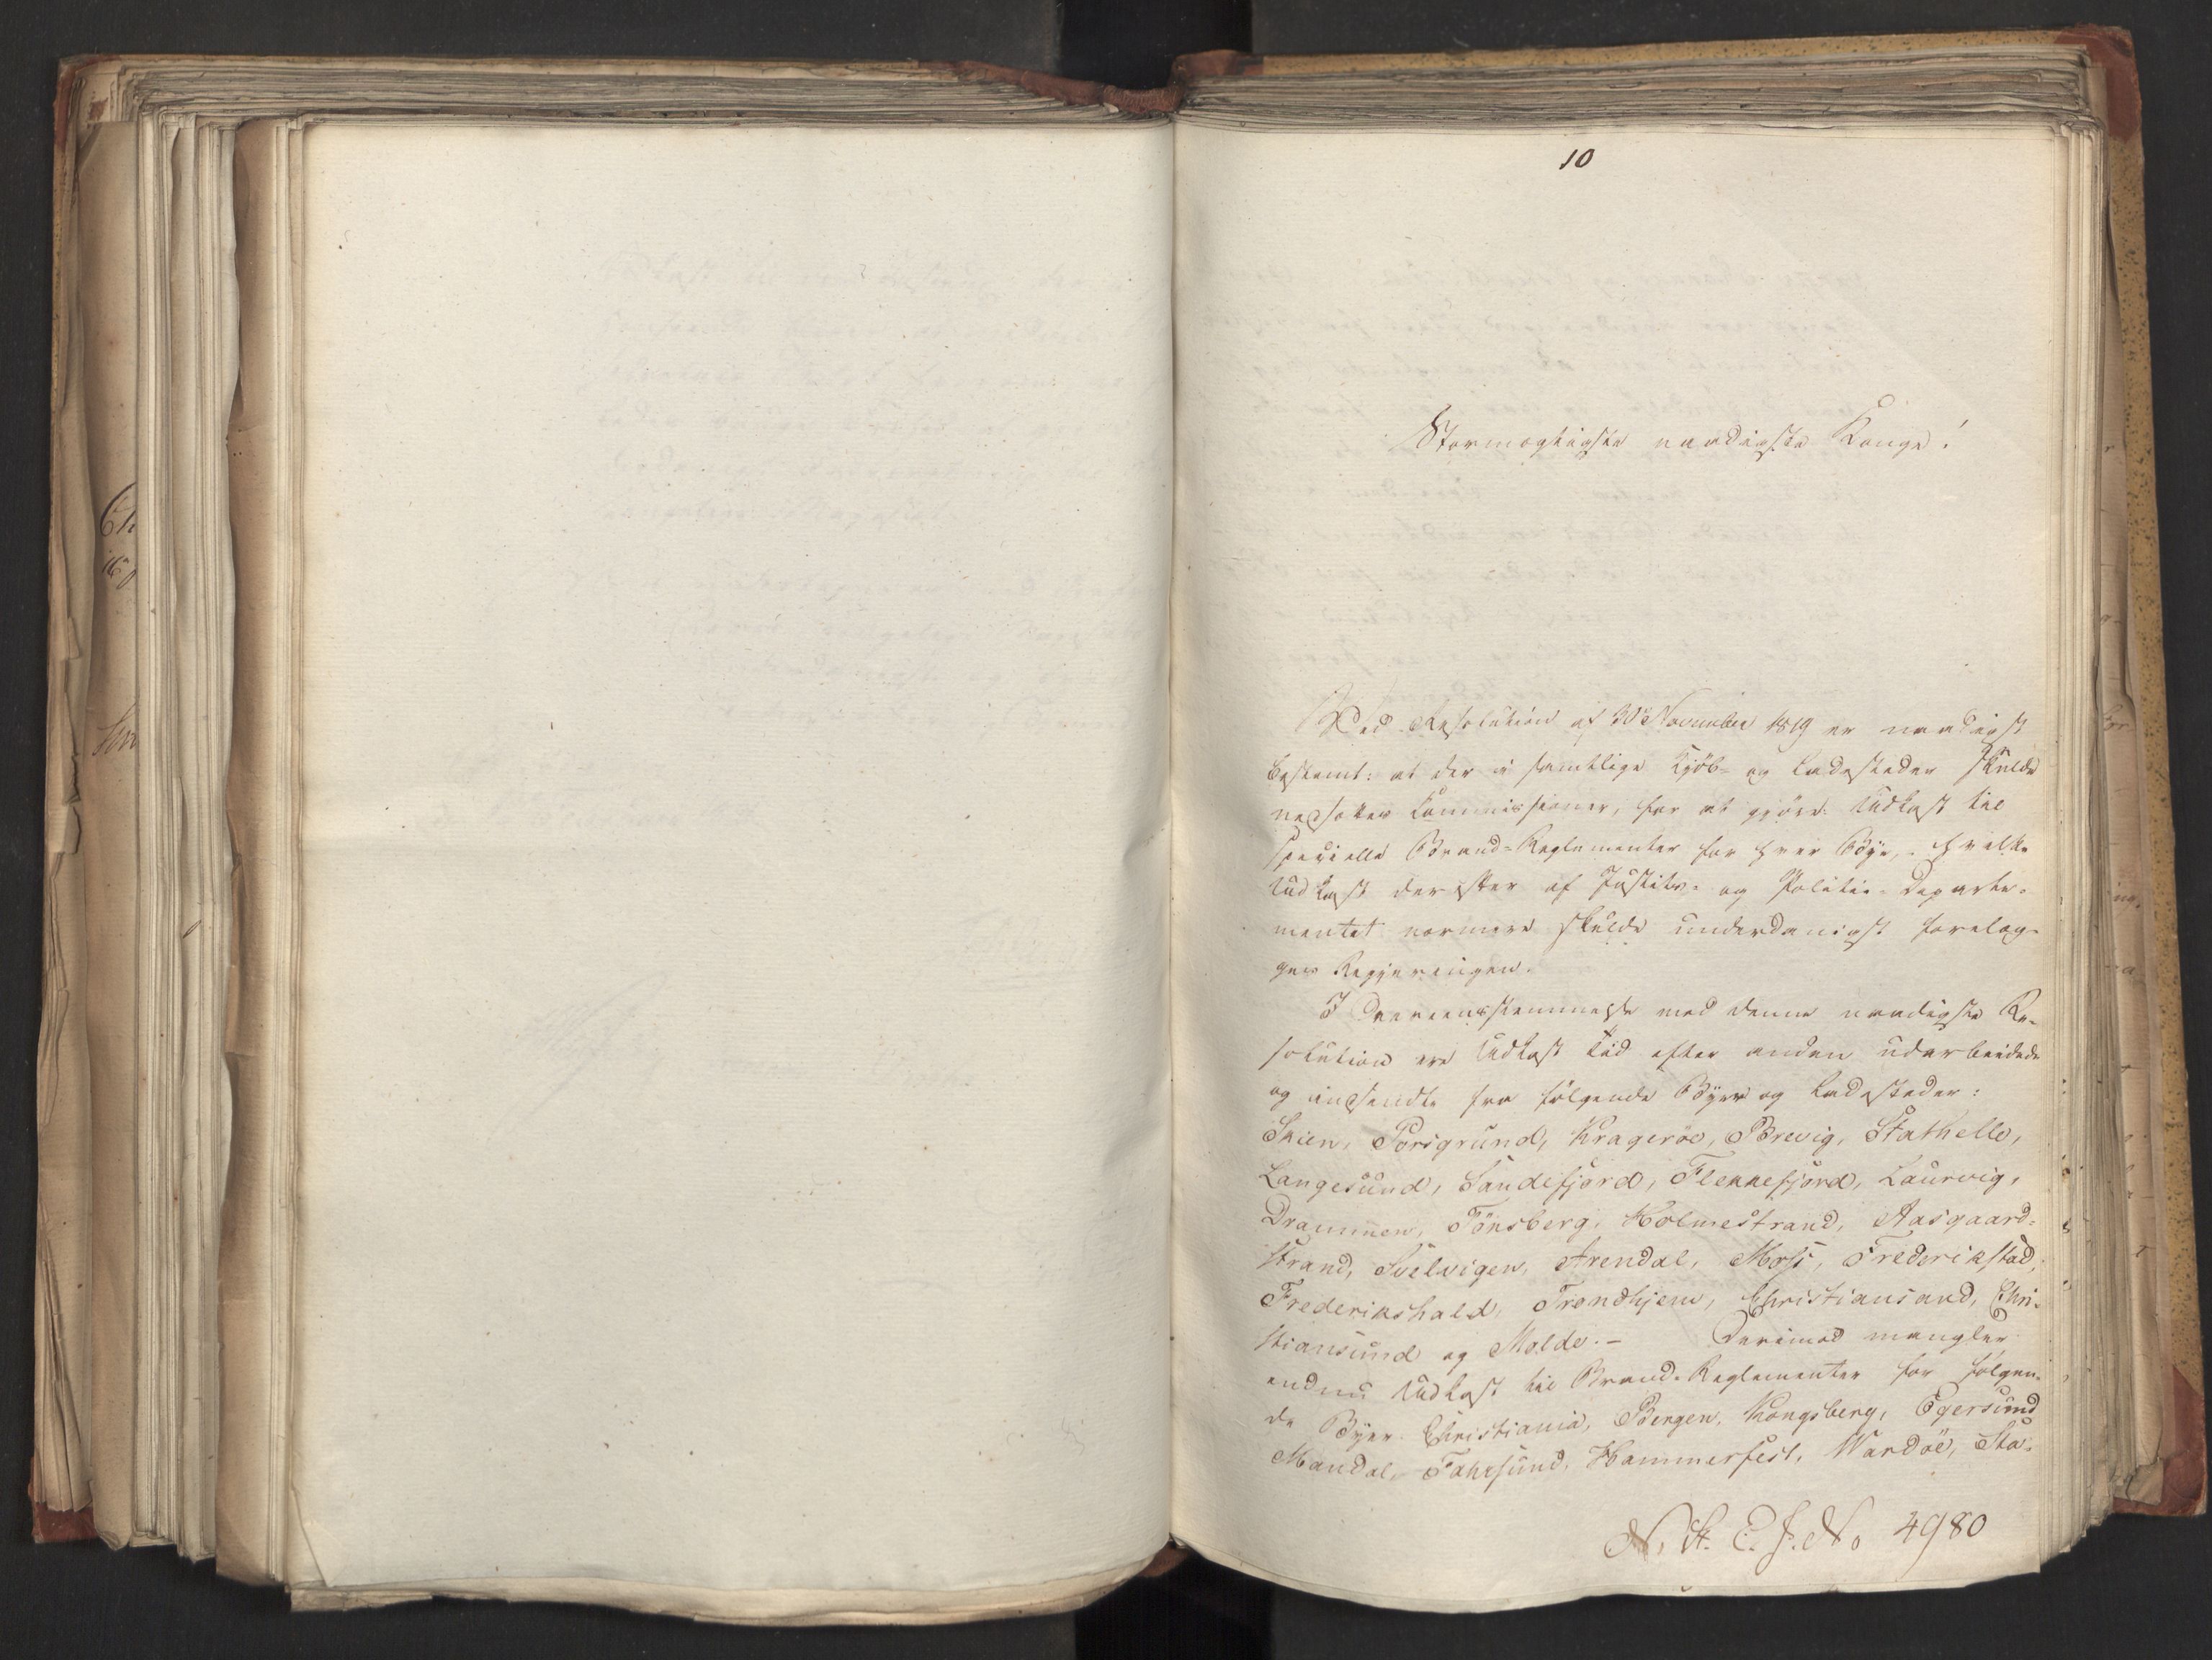 10
Stormægtigste naadigste Konge!
Ved Resolution af 30te November 1819 er naadigst
bestemt: at der i samtlige Kjöb- og Ladesteder skulde
nedsættes Commissioner, for at gjöre Udkast til
specielle Brand-Reglementer for hver Bye, hvilke
Udkast derefter af Justits- og Politie-Departe-
mentet nærmere skulde underdanigst forelæg-
ges Regjeringen.
I Overeensstemmelse med denne naadigste Re-
solution ere Udkast tid efter anden udarbeidede
og indsendte fra fölgende Byer og Ladesteder:
Skien, Porsgrund, Krageröe, Brevig, Stathelle,
Langesund, Sandefjord, Flekkefjord, Laurvig,
Drammen, Tönsberg, Holmestrand, Aasgaard-
strand, Svelvigen, Arendal, Moss, Frederikstad,
Frederikshald, Trondhjem, Christiansand, Chri-
stiansund og Molde. – Derimod mangler
endnu Udkast til Brand-Reglementer for fölgen-
de Byer Christiania, Bergen, Kongsberg, Egersund
Mandal, Fahrsund, Hammerfest, Wardöe, Sta-
N. St. E. J. No 4980